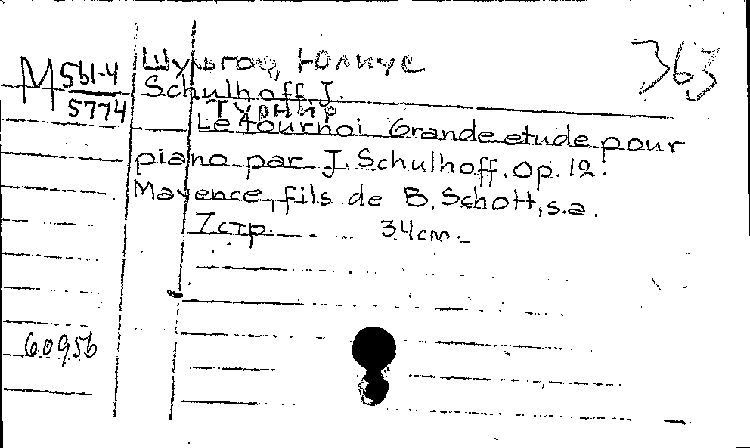 Шульгоф, Юлиус
363
М 561-4
5774
Schulhoff J.
Турнир
Le tournoi Grande etude pour
piano par J. Schulhoff. Op. 12.
Mayence, fils de B. Schott, s.a.
7 стр. 34 cm.
60956